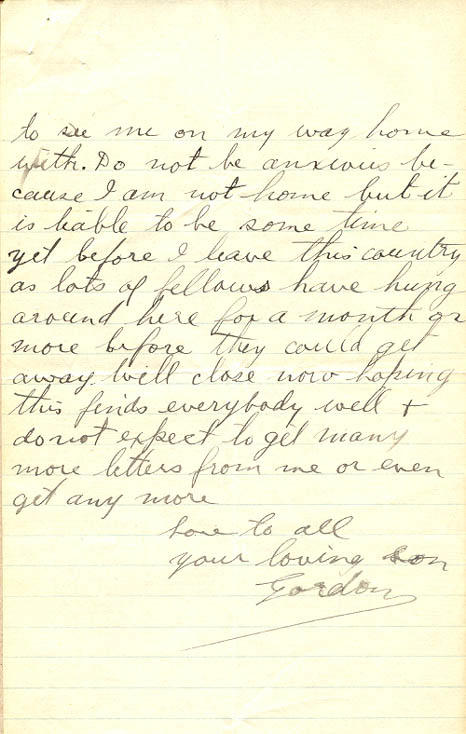 to see me on my way home
with. Do not be anxious be-
cause I am not home but it
is liable to be some time
yet before I leave this country
as lots of fellows have hung
around here for a month or
more before they could get
away. Will close now hoping
this finds everybody well +
do not expect to get many
more letters from me or even
get any more
Love to all
your loving son
Gordon